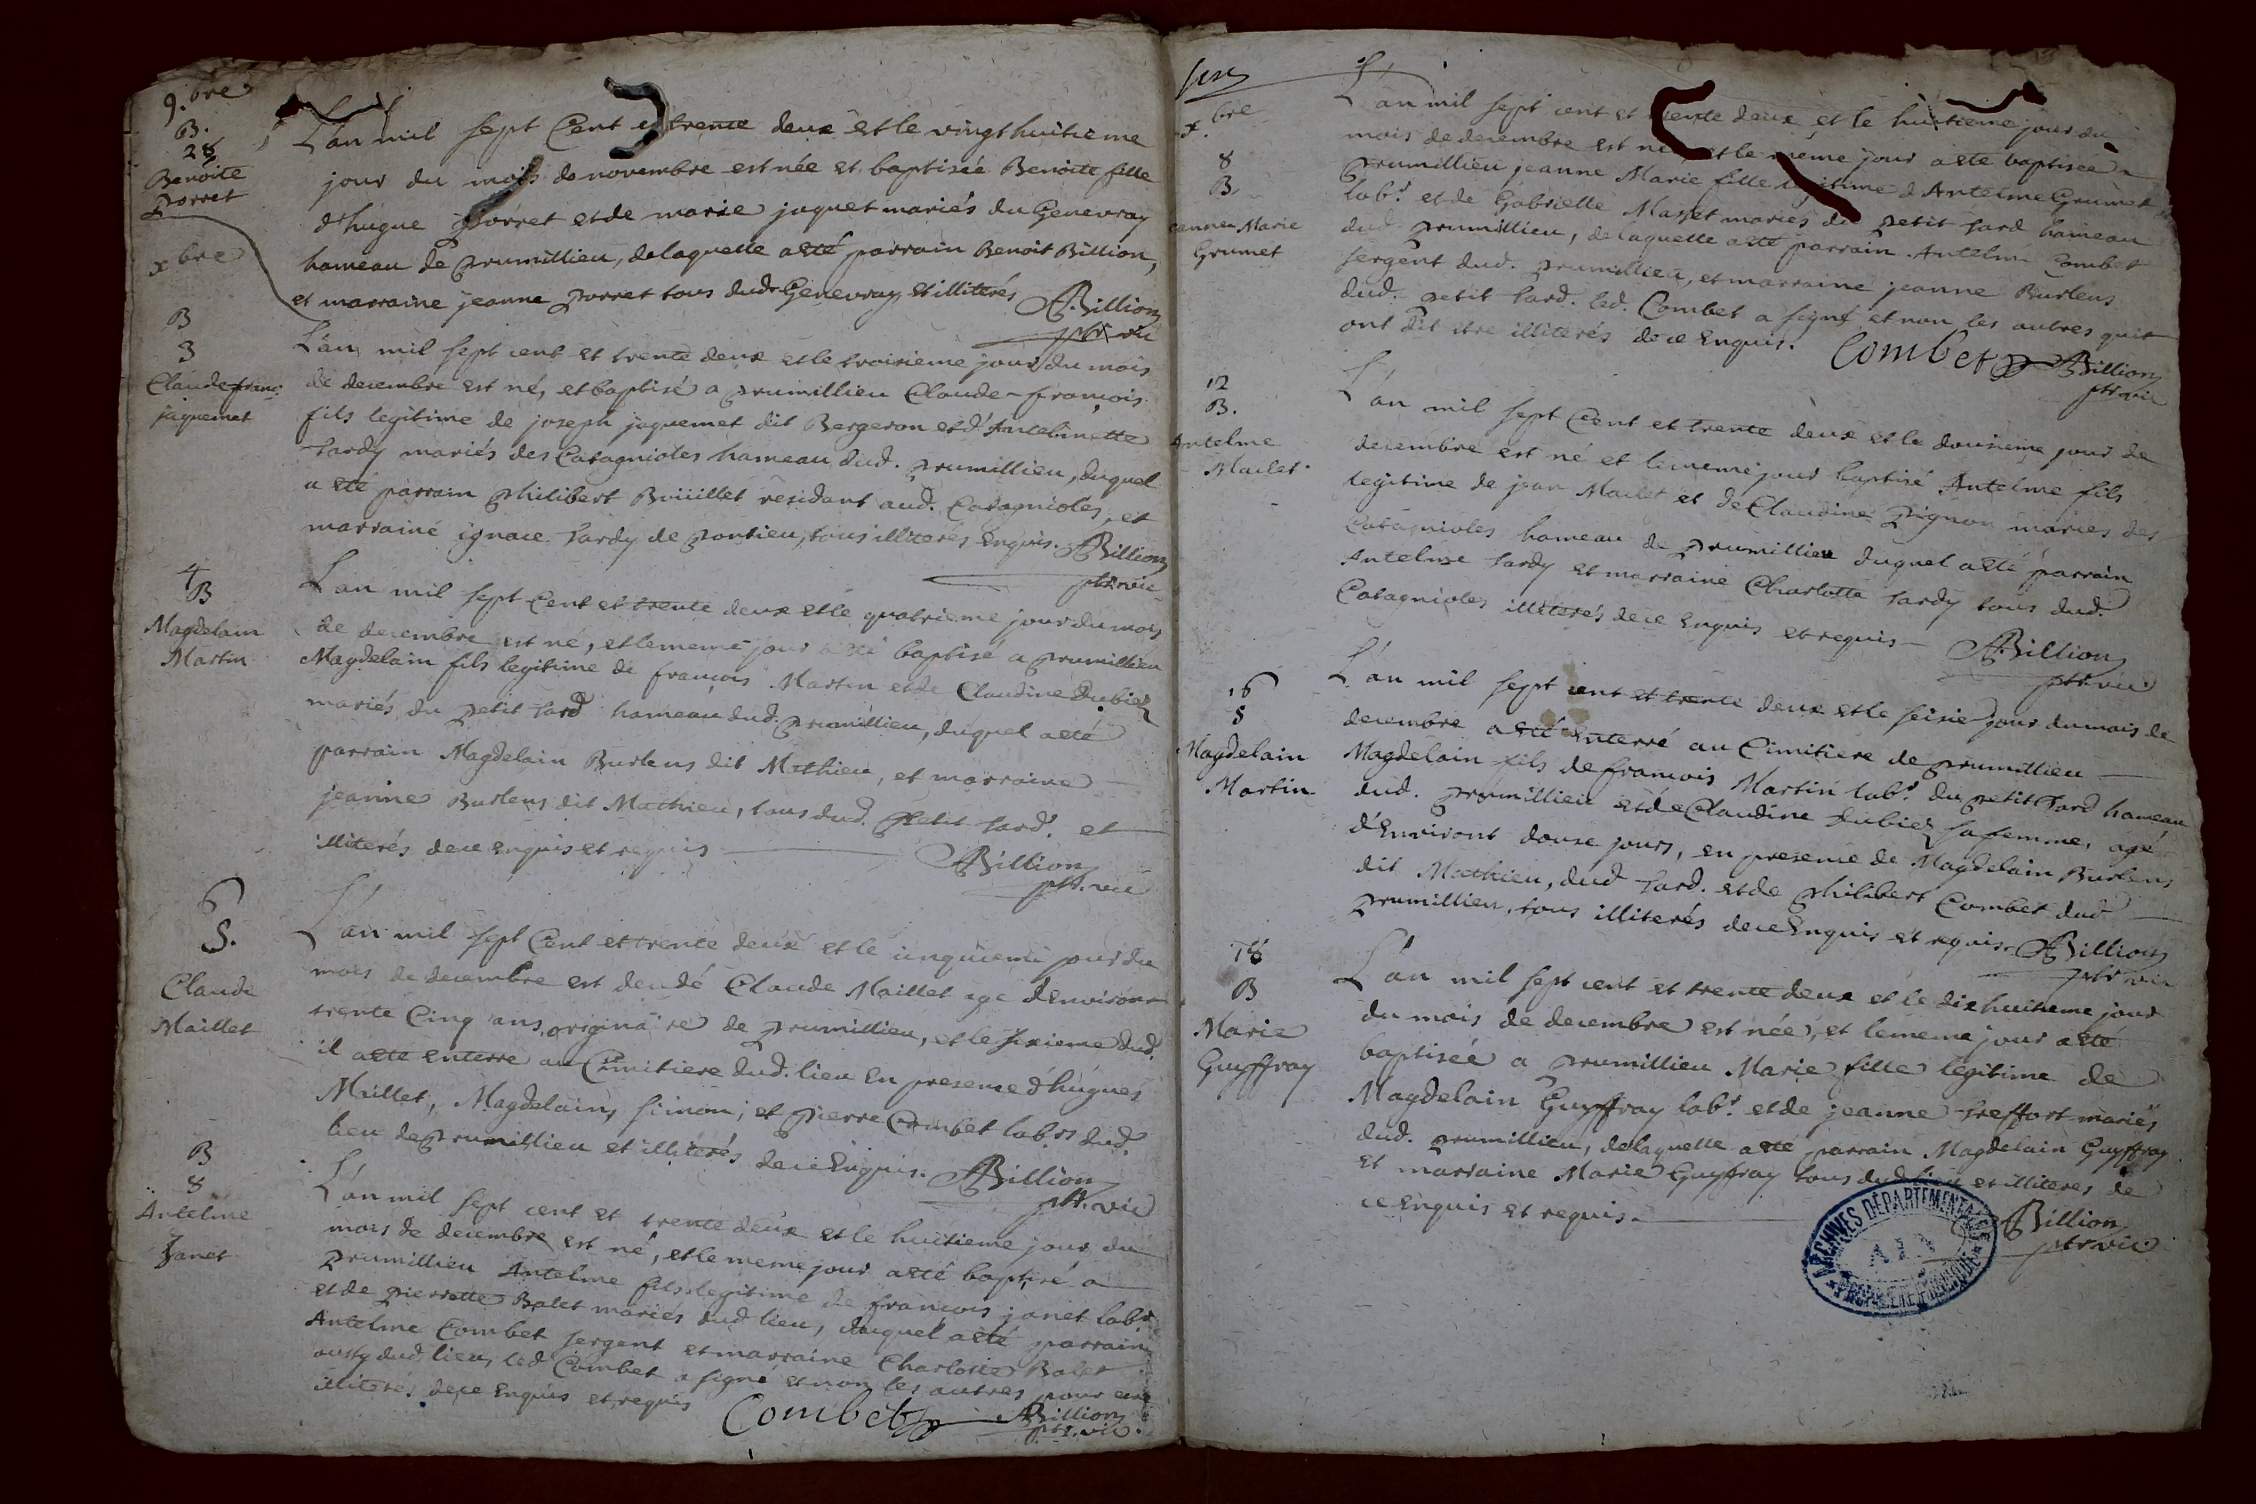 9.bre
B.
28
Benoite
Porret
L'an mil sept Cent et trente deux et le vingt huitieme
jour du mois de novembre est née et baptisée Benoite fille
d'hugue Porret et de marie jaquet mariés du Genevray
hameau de Prumillieu, de laquelle a eté parrain Benoit Billion,
et marraine jeanne Porret tous dud. Genevray et illiterés Billion
ptr. vic
xbre
B
3
Claude franç.
jaquemet
L'an mil sept cent et trente deux et le troisieme jour du mois
de decembre est né, et baptisé a Prumillieu Claude-françois
fils legitime de joseph jaquemet dit Bergeron et d'Antelmette
Tardy mariés des Catagnioles hameau dud. Prumillieu, duquel
a eté parrain Philibert Bouillet residant aud. Catagnioles, et
marraine ignace Tardy de Pontieu, tous illiterés Enquis. Billion
ptr. vic
4
B
Magdelain
Martin
L'an mil sept Cent et trente deux et le quatrieme jour du mois
de decembre est né, et le meme jour a eté baptisé a Prumillieu
Magdelain fils legitime de françois Martin et de Claudine Dubiez
mariés du Petit Tard hameau dud. Prumillieu, duquel a eté
parrain Magdelain Burlens dit Mathieu, et marraine
jeanne Burlens dit Mathieu, tous dud. Petit Tard. et
illiterés de ce enquis et requis Billion
ptr. vic
6
S.
Claude
Maillet
L'an mil sept Cent et trente deux et le cinquieme jour du
mois de decembre est decedé Claude Maillet agé d'Environt
trente Cinq ans, originaire de Prumillieu, et le sixieme dud.
il a eté enterré au Cimitiere dud. lieu En presence d'hugues
Maillet, Magdelain simon, et Pierre Combet labrs dud.
lieu de Prumillieu et illiterés de ce Enquis. Billion
ptr. vic
B
8
Antelme
Janet
L'an mil sept cent et trente deux et le huitieme jour du
mois de decembre est né, et le meme jour a eté baptisé a
Prumillieu Antelme fils legitime de françois janet labr
et de Pierrette Balet mariés dud lieu, duquel a eté parrain
Antelme Combet sergent et marraine Charlotte Balet
dud. lieu, led Combet a signé et non les autres pour etre
illiterés de ce Enquis et requis Combet Billion
ptr. vic.
xbre
8
B
jeanne Marie
Grumet
L'an mil sept cent et trente deux et le huitieme jour du
mois de decembre est née et le même jour a eté baptisée a
Prumillieu jeanne Marie fille legitime d'Antelme Grumet
labr. et de Gabrielle Masset mariés du Petit Tard hameau
dud Prumillieu, de laquelle a eté parrain Antelme Combet
sergent dud. Prumillieu, et marraine jeanne Burlens
dud. Petit Tard. led. Combet a signé et non les autres qui
ont dit etre illiterés de ce Enquis. Combet Billion
ptr. vic
12
B.
Antelme
Mailet.
L'an mil sept Cent et trente deux et le dousieme jour de
decembre est né et le meme jour baptisé Antelme fils
legitime de jean Mailet et de Claudine Pignon mariés des
Catagnioles hameau de Prumillieu duquel a eté parrain
Antelme Tardy et marraine Charlotte Tardy tous dud.
Catagnioles illiterés de ce Enquis et requis Billion
ptr. vic
16
S
Magdelain
Martin
L'an mil sept cent et trente deux et le seisie jour du mois de
decembre a eté enterré au Cimitiere de Prumillieu
Magdelain fils de françois Martin labr. du Petit Tard hameau
dud. Prumillieu et de Claudine Dubiez sa femme, agé
d'Environt douse jours, en presence de Magdelain Burlens
dit Mathieu, dud Tard. et de Philibert Combet dud
Prumillieu, tous illiterés de ce Enquis et requis. Billion
ptr. vic
18
B
Marie
Guyffray
L'an mil sept cent et trente deux et le dix huitieme jour
du mois de decembre est née, et le meme jour a eté
baptisée a Prumillieu Marie fille legitime de
Magdelain Guyffray labr. et de jeanne Treffort mariés
dud. Prumillieu, de laquelle a eté parrain Magdelain Guyffray
et marraine Marie Guyffray tous dud lieu et illiteres de
ce Enquis et requis. Billion
ptr. vic
ARCHIVES DÉPARTEMENTALES
AIN
PROPRIÉTÉ PUBLIQUE